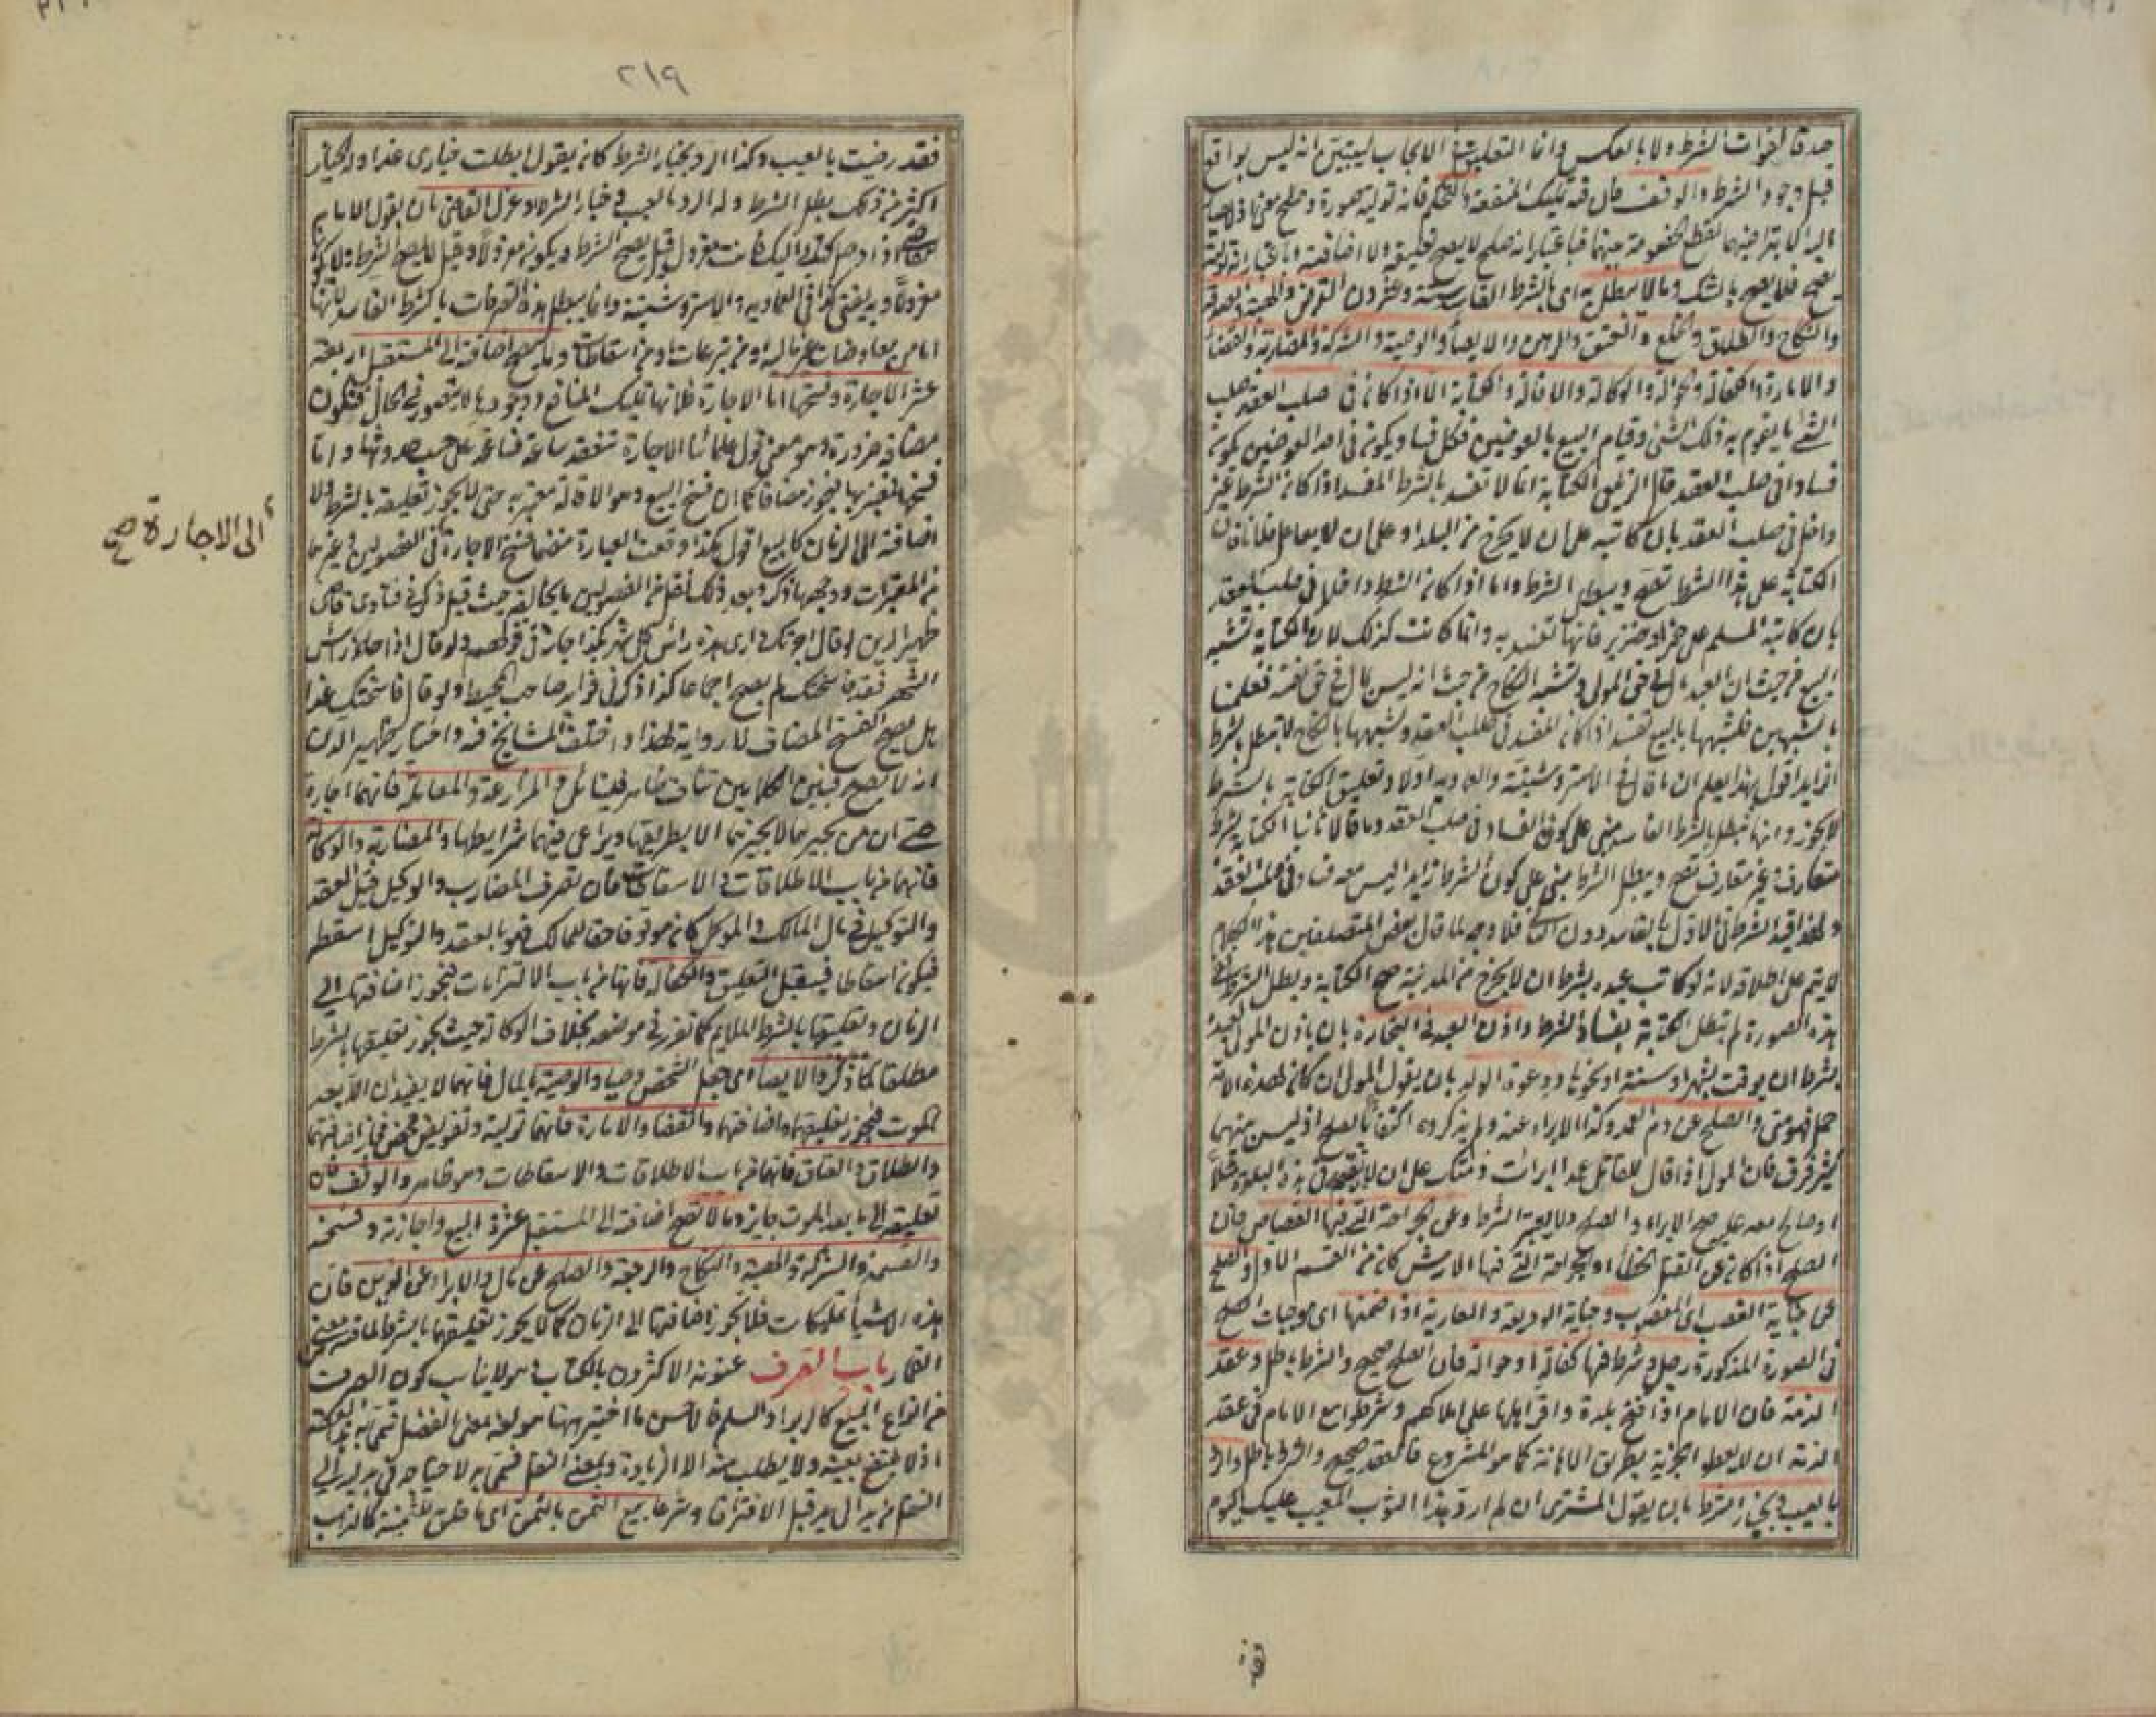 قبل وجود الشرط والوقف فان فيه تمليك المنفعة والتحكيم فانه تولية صورة وصلح معنى
يصح فلا يصح بالشك وما لا يبطل به اى بالشرط الفاسد ستة وعشرون القرض والهبة والصدقة
والنكاح والطلاق والخلع والعتق والرهن والايصاء والوصية والشركة والمضاربة والقضاء
والامارة والكفالة والحوالة والوكالة والاقالة والكتابة الا اذا كان فى صلب العقد صلب
الشئ ما يقوم به ذلك الشئ وقيام البيع بالعوضين فكل فساد يكون فى احد العوضين يكون
فسادا فى صلب العقد قال الزيلعى الكتابة انما لا تفسد بالشرط المفسد اذا كان الشرط غير
داخل فى صلب العقد بان كاتبه على ان لا يخرج من البلد او على ان لا يعامل فلانا فان
الكتابة على هذا الشرط تصح ويبطل الشرط واما اذا كان الشرط داخلا فى صلب العقد
بان كاتب المسلم على خمر او خنزير فانها تفسد به وانما كانت كذلك لان الكتابة تشبه
البيع من حيث ان العبد مال فى حق المولى وتشبه النكاح من حيث انه ليس بمال فى حق نفسه فعملنا
بالشبهين فلشبهها بالبيع تفسد اذا كان المفسد فى صلب العقد ولشبهها بالنكاح لا تبطل بالشرط
الزايد اقول بهذا يعلم ان ما قال فى الاستروشنية والعمادية اولا وتعليق الكتابة بالشرط
لا يجوز وانها تبطل بالشرط الفاسد مبنى على كون الفساد فى صلب العقد وما قالا ثانيا الكتابة بشرط
متعارف وغير متعارف تصح ويبطل الشرط مبنى على كون الشرط زايدا ليس معه فساد فى صلب العقد
لا يتم على اطلاقه لانه لو كاتب عبده بشرط ان لا يخرج من المدينة صح الكتابة وبطل الشرط
هذه الصورة لم تبطل الكتابة بفساد الشرط واذن العبد فى التجارة بان ياذن المولى لعبده
بشرط ان يوقت بشهر او سنة او نحوها ودعوة الولد بان يقول المولى ان كان لهذه الامة
حمل فهو منى والصلح عن دم العمد وكذا الابراء عنه ولم يذكروه اكتفاء بالصلح اذ ليس بينهما
كثير فرق فان المولى اذا قال للقاتل عمدا ابرأت ذمتك على ان لا تقيم فى هذه البلدة مثلا
او صالح معه عليه صح الابراء والصلح ولا يعتبر الشرط وعن الجراحة التى فيها القصاص فان
الصلح اذا كان عن القتل الخطأ او الجراحة التى فيها الارش كان من القسم الاول والصلح
عن جناية الغصب اى المغصوب وجناية الوديعة والعارية اذا ضمنها اى موجبات الصلح
فى الصورة المذكورة رجل وشرط فيها كفالة او حوالة فان الصلح صحيح والشرط باطل وعقد
الذمة فان الامام اذا فتح بلدة واقر اهلها على املاكهم وشرطوا مع الامام فى عقد
الذمة ان لا يعطوا الجزية بطريق الاهانة كما هو المشروع فالعقد صحيح والشرط باطل والرد
بالعيب وبخيار الشرط بان يقول المشترى ان لم ارد هذا الثوب المعيب عليك اليوم
فقد
٢١٩
فقد رضيت بالعيب وكذا الرد بخيار الشرط كانه يقول ابطلت خيارى غدا وله الخيار
اكثر من ذلك بطل الشرط وله الرد بالعيب فى خيار الشرط وعزل القاضى بان يقول الامام
للقاضى اذا وصل كتابى اليك فانت معزول قيل يصح الشرط ويكون معزولا وقيل لا يصح الشرط ولا يكون
معزولا وبه يفتى كذا فى العمادية والاستروشنية وانما لم يبطل هذه التصرفات بالشرط الفاسد لانها
اما من معاوضات غير مالية او من تبرعات او من اسقاطات وما يصح اضافته الى المستقبل اربعة
عشر الاجارة وفسخها اما الاجارة فلانها تمليك المنافع ووجودها لا يتصور فى الحال فتكون
مضافة ضرورة وهو معنى قول علمائنا الاجارة تنعقد ساعة فساعة على حسب حدوثها واما
فسخها فمعتبر بها فيجوز مضافا كما ان فسخ البيع وهو الاقالة معتبر به حتى لا يجوز تعليقه بالشرط ولا
اضافته الى الزمان كالبيع اقول هكذا وقعت العبارة منضما فسخ الاجارة فى الفصولين وغيرها
الى الاجارة صح
من المعتبرات ووجهه ما ذكر وبعد ذلك نقل فى الفصولين ما يخالفه حيث قيل ذكر فى فتاوى قاضى
ظهير الدين لو قال اجرتك دارى هذه راس كل شهر بكذا جاز فى قولهم ولو قال اذا جاء راس
الشهر فقد فاسختك لم يصح اجماعا كذا ذكر فى فوائد صاحب المحيط ولو قال فاسختك غدا
هل يصح الفسخ المضاف لا رواية لهذا واختلف المشايخ فيه واختيار ظهير الدين
انه لا يصح فبين الكلامين تناف ظاهر فليتأمل والمزارعة والمعاملة فانهما اجارة
حتى ان من يجيزهما لا يجيزهما الا بطريقها ويراعى فيهما شرايطها والمضاربة والوكالة
فانهما من باب الاطلاقات والاسقاطات فان تصرف المضارب والوكيل قبل العقد
والتوكيل فى مال المالك والموكل كان موقوفا حقا للمالك فهو بالعقد والتوكيل اسقطه
فيكون اسقاطا فيقبل التعليق والكفالة فانها من باب الالتزامات فيجوز اضافتها الى
الزمان وتعليقها بالشرط الملايم كما تقرر فى موضعه بخلاف الوكالة حيث يجوز تعليقها بالشرط
مطلقا كما ذكر والايصاء اى جعل الشخص وصيا والوصية بالمال فانهما لا يفيدان الا بعد
الموت فيجوز تعليقهما واضافتهما والقضاء والامارة فانهما تولية وتفويض محض فجاز اضافتهما
والطلاق والعتاق فانهما من باب الاطلاقات والاسقاطات وهو ظاهر والوقف فان
تعليقه الى ما بعد الموت جايز وما لا تصح اضافته الى المستقبل عشرة البيع واجازته وفسخه
والقسمة والشركة والهبة والنكاح والرجعة والصلح عن مال والابراء عن الدين فان
هذه الاشياء تمليكات فلا يجوز اضافتها الى الزمان كما لا يجوز تعليقها بالشرط لما فيه من معنى
القمار باب الصرف عنونه الاكثرون بالكتاب وهو لا يناسب كون الصرف
من انواع البيع كالربوا والسلم فالاحسن ما اختير ههنا هو لغة بمعنى الفضل
اذ لا ينتفع بعينه ولا يطلب منه الا الزيادة وبمعنى النقل فسمى به لاحتياجه فى بدليه الى
النقل من يد الى يد قبل الافتراق وشرعا بيع الثمن بالثمن اى ما خلق للثمنية كالذهب